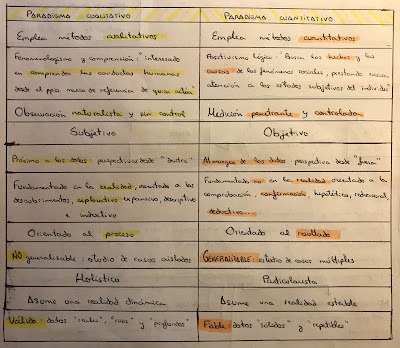 PARADIGMA CUALITATIVO
PARADIGMA CUANTITATIVO
Emplea métodos cualitativos
Emplea métodos cuantitativos
Fenomenologismo y comprensión: "interesado
en comprender las conductas humanas
desde el propio marco de referencia de quien actúa"
Positivismo lógico: "Busca los hechos y las
causas de los fenómenos sociales, prestando escasa
atención a los estados subjetivos del individuo"
Observación naturalista y sin control
Medición penetrante y controlada
Subjetivo
Objetivo
Próximo a los datos perspectivas desde "dentro"
Al margen de los datos perspectiva desde "fuera"
Fundamentado en la realidad, orientado a los
descubrimientos, exploratorio, expansivo, descriptivo
e inductivo
Fundamentado no en la realidad, orientado a la
comprobación, confirmación, reduccional,
deductivo...
Orientado al proceso
Orientado al resultado
NO generalizable: estudio de casos aislados
GENERALIZABLE: estudio de casos múltiples
Holístico
Particularista
Asume una realidad dinámica
Asume una realidad estable
Válido: datos "reales", "ricos" y "profundos"
Fiable: datos "sólidos" y "repetibles"